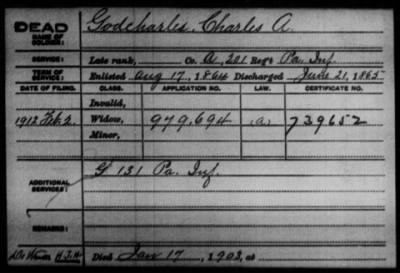 DEAD
NAME OF SOLDIER:
Godcharles, Charles A.
SERVICE: Late rank, Co. A, 201 Reg't Pa. Inf.
TERM OF SERVICE: Enlisted Aug 17, 1864 Discharged June 21, 1865
DATE OF FILING. CLASS. APPLICATION NO. LAW. CERTIFICATE NO.
Invalid,
1912 Feb. 2. Widow, 979,694 (a) 739652
Minor,
ADDITIONAL SERVICES: G 131 Pa. Inf.
REMARKS:
Died Jan 17, 1903, at